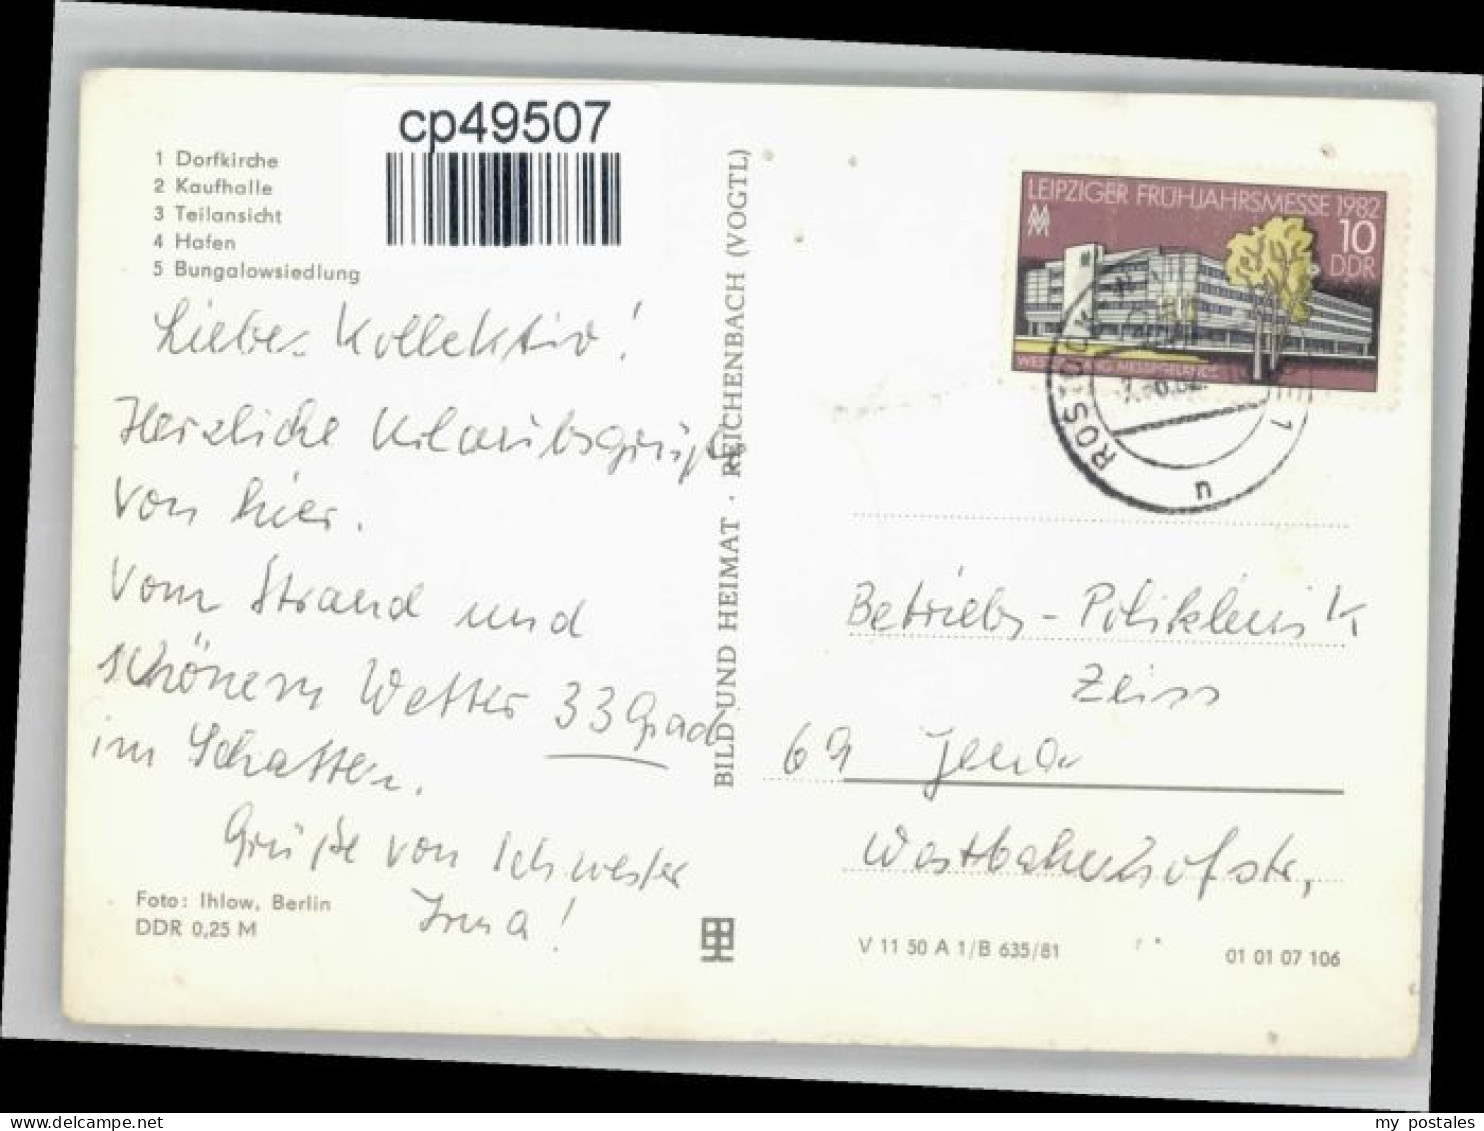 cp49507
1 Dorfkirche
2 Kaufhalle
3 Teilansicht
4 Hafen
5 Bungalowsiedlung
Liebes Kollektiv!
Herzliche Urlaubsgrüße
von hier.
Vom Strand und
schönem Wetter 33 Grad
im Schatten.
Grüße von Schwester
Irma!
Foto: Ihlow, Berlin
DDR 0,25 M
BILD UND HEIMAT · REICHENBACH (VOGTL)
LEIPZIGER FRÜHJAHRSMESSE 1982
10
DDR
MESSEGELÄNDE
ROSTOCK 1
u
Betriebs-Poliklinik
Zeiss
69 Jena
Westbahnhofstr.
V 11 50 A 1/B 635/81
01 01 07 106
my postales